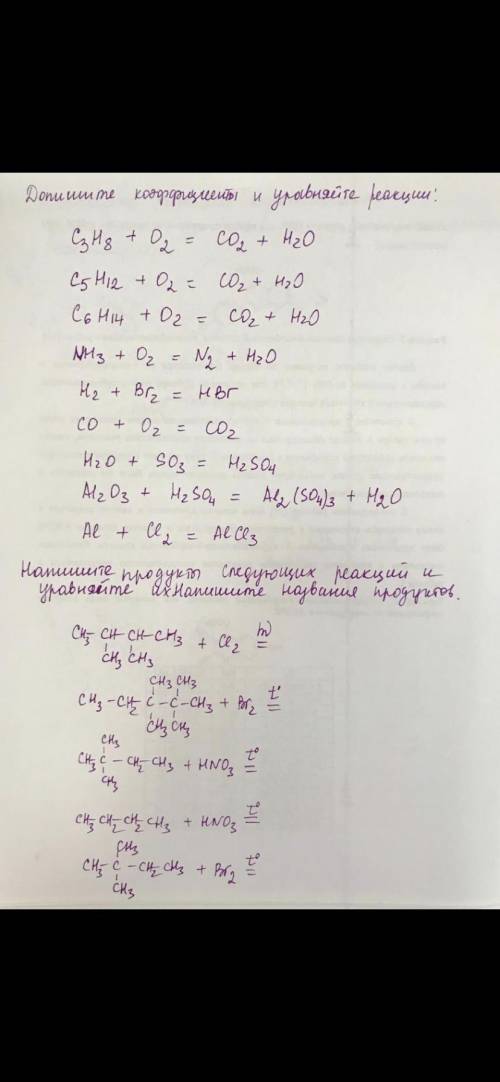 Допишите коэффициенты и уравняйте реакции:
C3H8 + O2 = CO2 + H2O
C5H12 + O2 = CO2 + H2O
C6H14 + O2 = CO2 + H2O
NH3 + O2 = N2 + H2O
H2 + Br2 = HBr
CO + O2 = CO2
H2O + SO3 = H2SO4
Al2O3 + H2SO4 = Al2(SO4)3 + H2O
Al + Cl2 = AlCl3
Напишите продукты следующих реакций и
уравняйте их Напишите названия продуктов.
CH3-CH-CH-CH3 + Cl2 hν =
CH3 CH3
CH3 CH3
CH3-CH2-C-C-CH3 + Br2 t° =
CH3 CH3
CH3
CH3-C-CH2-CH3 + HNO3 t° =
CH3
CH3-CH2-CH2-CH3 + HNO3 t° =
CH3
CH3-C-CH2CH3 + Br2 t° =
CH3